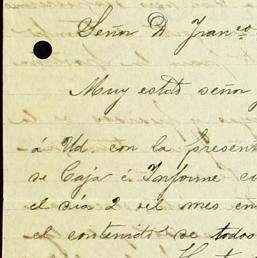 Señor D Franco
Muy estdo señor
á Ud con la present
de Caja é Informe co
el día 2 del mes en
el contenido de todos